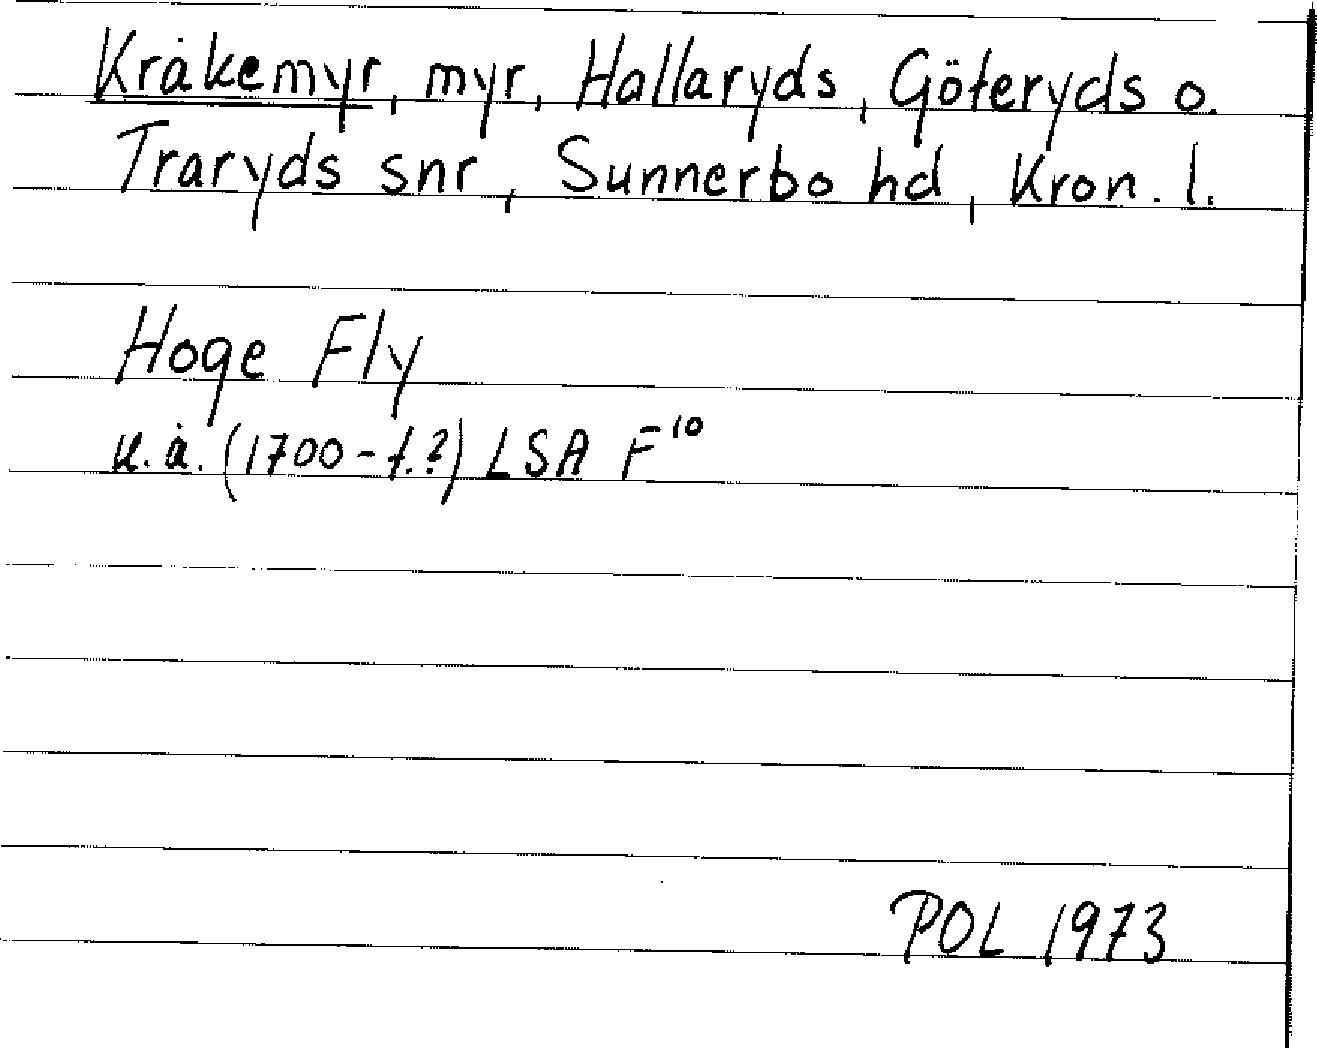 Kråkemyr, myr, Hallaryds, Göteryds o.
Traryds snr, Sunnerbo hd, Kron. l.
Hoge Fly
u.å. (1700-t.?) LSA F¹⁰
POL 1973